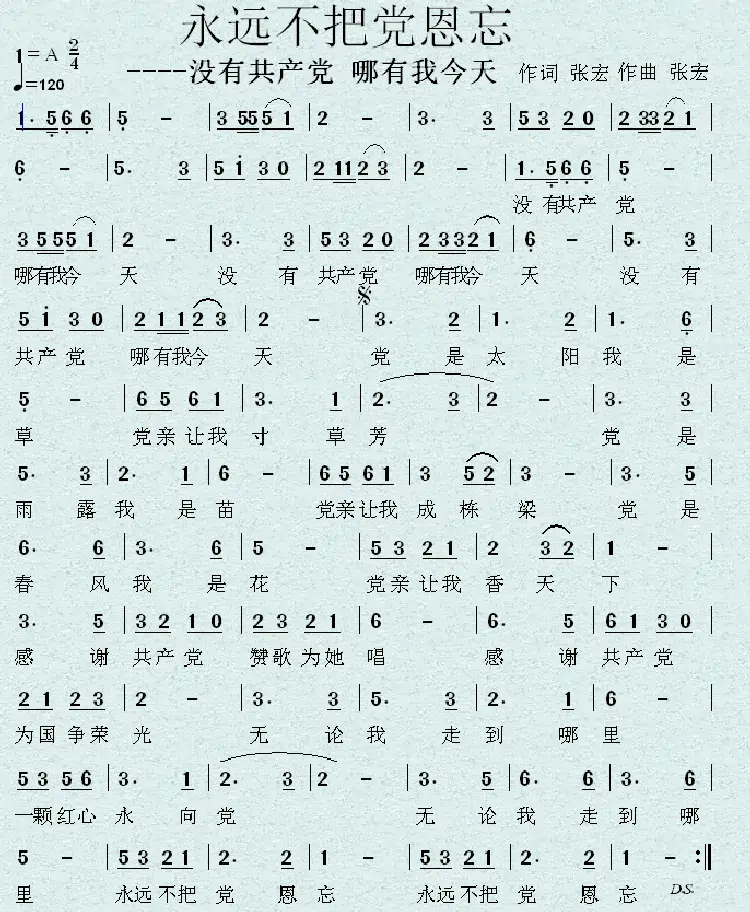 永远不把党恩忘
1=A 2/4
♩=120
----没有共产党 哪有我今天 作词 张宏 作曲 张宏
1. 5 6 6 | 5 - | 3 5 5 5 1 | 2 - | 3. 3 | 5 3 2 0 | 2 3 3 2 1 |
6 - | 5. 3 | 5 1 3 0 | 2 1 1 2 3 | 2 - | 1. 5 6 6 | 5 - |
没 有共产 党
3 5 5 5 1 | 2 - | 3. 3 | 5 3 2 0 | 2 3 3 2 1 | 6 - | 5. 3 |
哪有我今 天 没 有 共产党 哪有我今 天 没 有
5 1 3 0 | 2 1 1 2 3 | 2 - | 3. 2 | 1. 2 | 1. 6 |
共产党 哪有我今 天 党 是 太 阳 我 是
5 - | 6 5 6 1 | 3. 1 | 2. 3 | 2 - | 3. 3 |
草 党亲让我 寸 草 芳 党 是
5. 3 | 2. 1 | 6 - | 6 5 6 1 | 3 5 2 | 3 - | 3. 5 |
雨 露 我 是 苗 党亲让我 成 栋 梁 党 是
6. 6 | 3. 6 | 5 - | 5 3 2 1 | 2 3 2 | 1 - |
春 风 我 是 花 党亲让我 香 天 下
3. 5 | 3 2 1 0 | 2 3 2 1 | 6 - | 6. 5 | 6 1 3 0 |
感 谢 共产党 赞歌为她 唱 感 谢 共产党
2 1 2 3 | 2 - | 3. 3 | 5. 3 | 2. 1 | 6 - |
为国争荣 光 无 论 我 走 到 哪 里
5 3 5 6 | 3. 1 | 2. 3 | 2 - | 3. 5 | 6. 6 | 3. 6 |
一颗红心 永 向 党 无 论 我 走 到 哪
5 - | 5 3 2 1 | 2. 2 | 1 - | 5 3 2 1 | 2. 2 | 1 - :||
里 永远不把 党 恩 忘 永远不把 党 恩 忘 D.S.